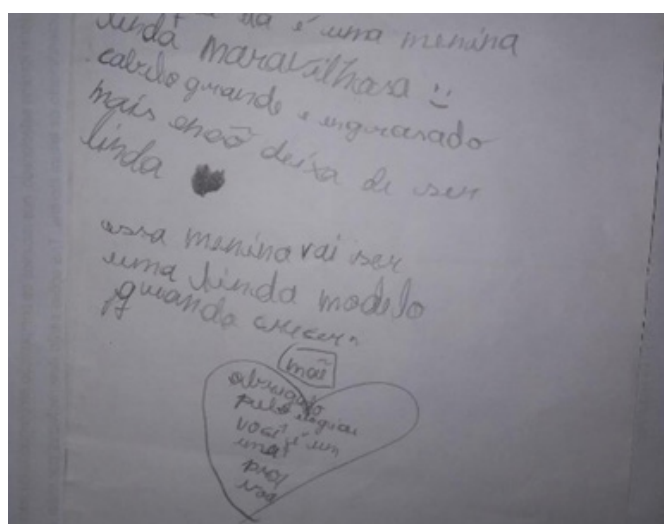 é uma menina
linda maravilhosa :)
cabelo grande e engrasado
mais enoõ deixa de ser
linda
essa menina vai ser
uma linda modelo
quando crecer
mãe
obrigado
pelo
você é um
uma
prof